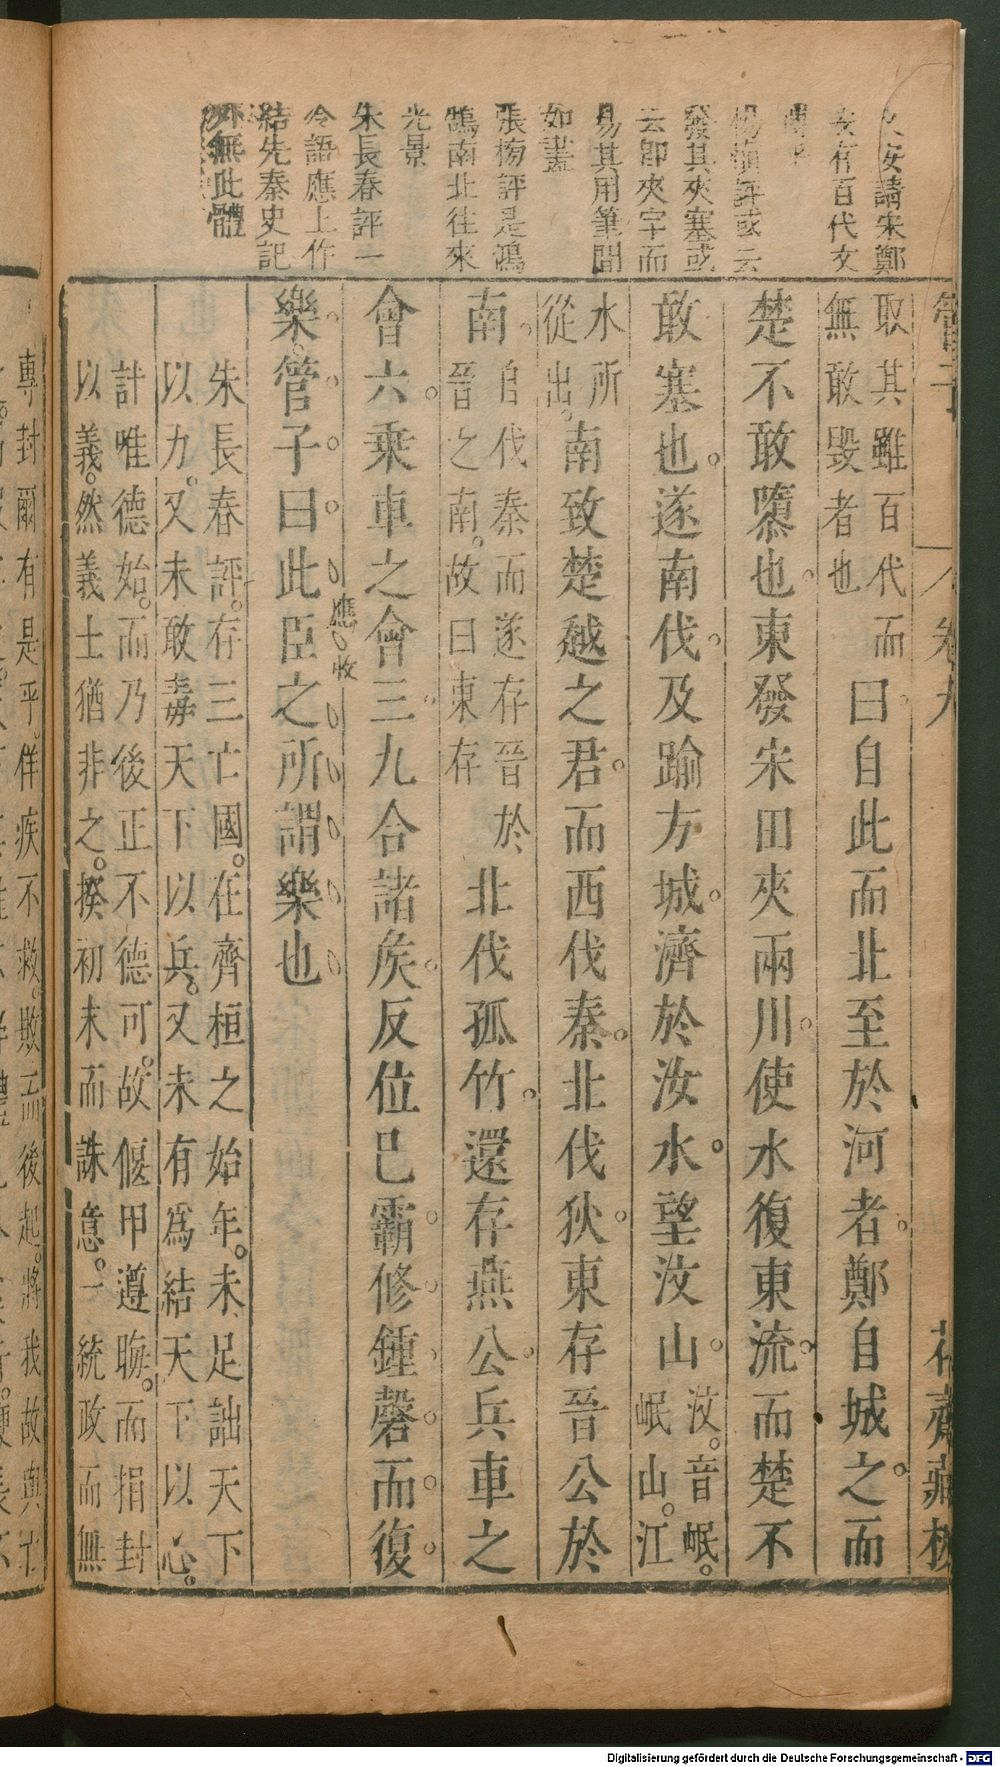 管子 卷九 花齋藏板
安請宋鄭
有百代文
評或云
發其夾塞或
云卽夾字而
易其用筆間
如畫
張榜評是鴻
鵠南北往來
光景
朱長春評一
令語應上作
結先秦史記
外無此體
取其雖百代而
無敢毀者也
曰自此而北至於河者鄭自城之而
楚不敢隳也東發宋田夾兩川使水復東流而楚不
敢塞也遂南伐及踰方城濟於汝水望汶山
汶音岷
岷山江
水所
從出
南致楚越之君而西伐秦北伐狄東存晉公於
南
自伐秦而遂存晉於
晉之南故曰東存
北伐孤竹還存燕公兵車之
會六乘車之會三九合諸矦反位已霸修鍾磬而復
應收
樂管子曰此臣之所謂樂也
朱長春評存三亡國在齊桓之始年未足詘天下
以力又未敢毒天下以兵又未有爲結天下以心
計唯德始而乃後正不德可故偃甲遵聘而捐封
以義然義士猶非之揆初末而誅意一統政而無
專封爾有是乎佯疾不救敗而後起將我故與
Digitalisierung gefördert durch die Deutsche Forschungsgemeinschaft - DFG